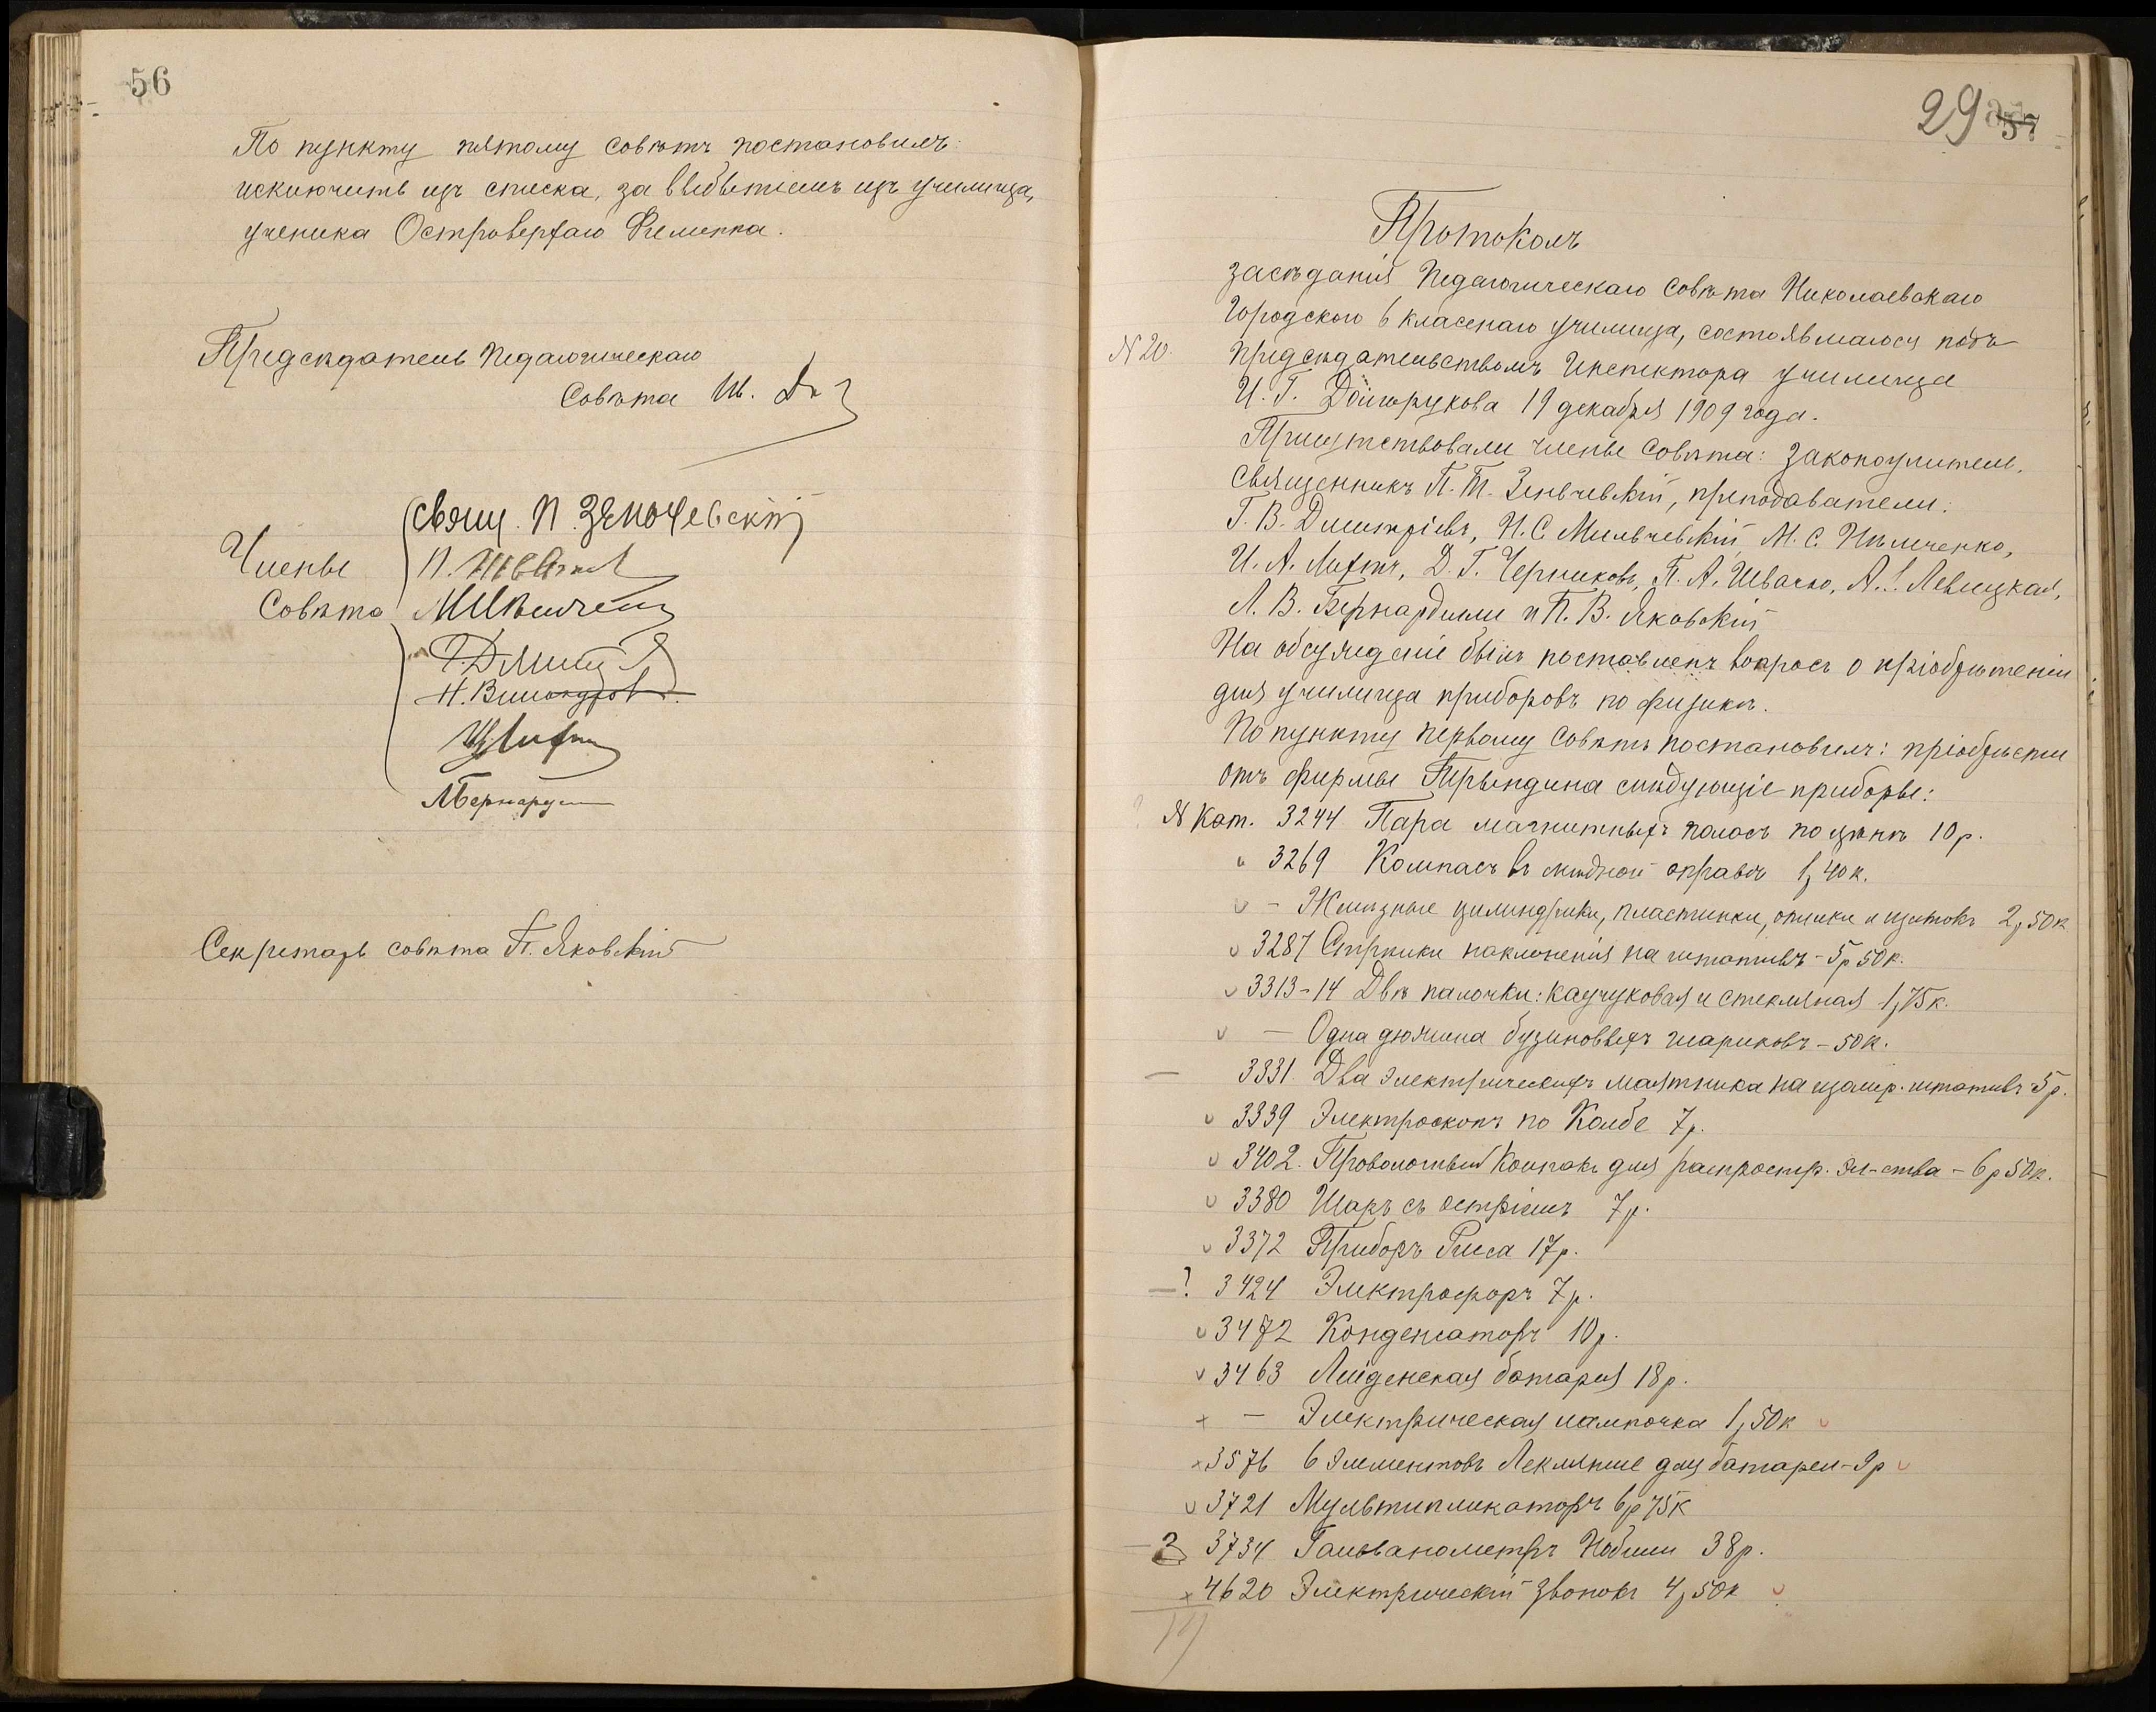 56
По пункту пятому совѣтъ постановилъ:
исключить изъ списка, за выбытіемъ изъ училища,
ученика Островерхаго Филиппа.
Предсѣдатель Педагогическаго
Совѣта
Члены
Совѣта
Свящ. П. Зеньчевскій
П. Швачко
М. Ильченко
Г. Дмит
И. Лифт
Л. Бернард
Секретарь совѣта П. Яковскій
29 57
Протоколъ
засѣданія Педагогическаго Совѣта Николаевскаго
Городского 6 класснаго училища, состоявшагося подъ
N 20. предсѣдательствомъ Инспектора училища
И. Г. Долгорукова 19 декабря 1909 года.
Присутствовали члены Совѣта: законоучитель,
священникъ П. Т. Зеньчевскій, преподаватели:
Г. В. Дмитріевъ, Н. С. Мильчевскій, М. С. Ильченко,
И. А. Лифтъ, Д. Г. Черниковъ, П. А. Швачко, А. Левицкая,
Л. В. Бернардили и П. В. Яковскій
На обсужденіе былъ поставленъ вопросъ о пріобрѣтеніи
для училища приборовъ по физикѣ.
По пункту первому Совѣтъ постановилъ: пріобрѣсти
отъ фирмы Трындина слѣдующіе приборы:
N Кат. 3244 Пара магнитныхъ полосъ по цѣнѣ 10 р.
" 3269 Компасъ въ мѣдной оправѣ 1,40 к.
v - Желѣзные цилиндрики, пластинки, опилки и щитокъ 2,50 к
v 3287 Стрѣлки наклоненія на штативѣ - 5 р 50 к.
v 3313-14 Двѣ палочки: каучуковая и стекляная 1,75 к.
v — Одна дюжина бузиновыхъ шариковъ - 50 к.
— 3331. Два электрическихъ маятника на изолир. штативѣ 5 р.
v 3339 Электроскопъ по Колбе 7 р.
v 3402. Проволочный колпакъ для распростр. эл-ства - 6 р 50 к.
v 3380 Шаръ съ остріемъ 7 р.
v 3372 Приборъ Риса 17 р.
—? 3424 Электрофоръ 7 р.
v 3472 Конденсаторъ 10 р.
v 3463 Лейденская батарея 18 р.
+ — Электрическая лампочка 1,50 к v
× 3576 6 Элементовъ Лекланше для батареи - 9 р v
v 3721 Мультипликаторъ 6 р 75 к
— 3 3734 Гальванометръ Нобили 38 р.
× 4620 Электрическій звонокъ 4,50 к v